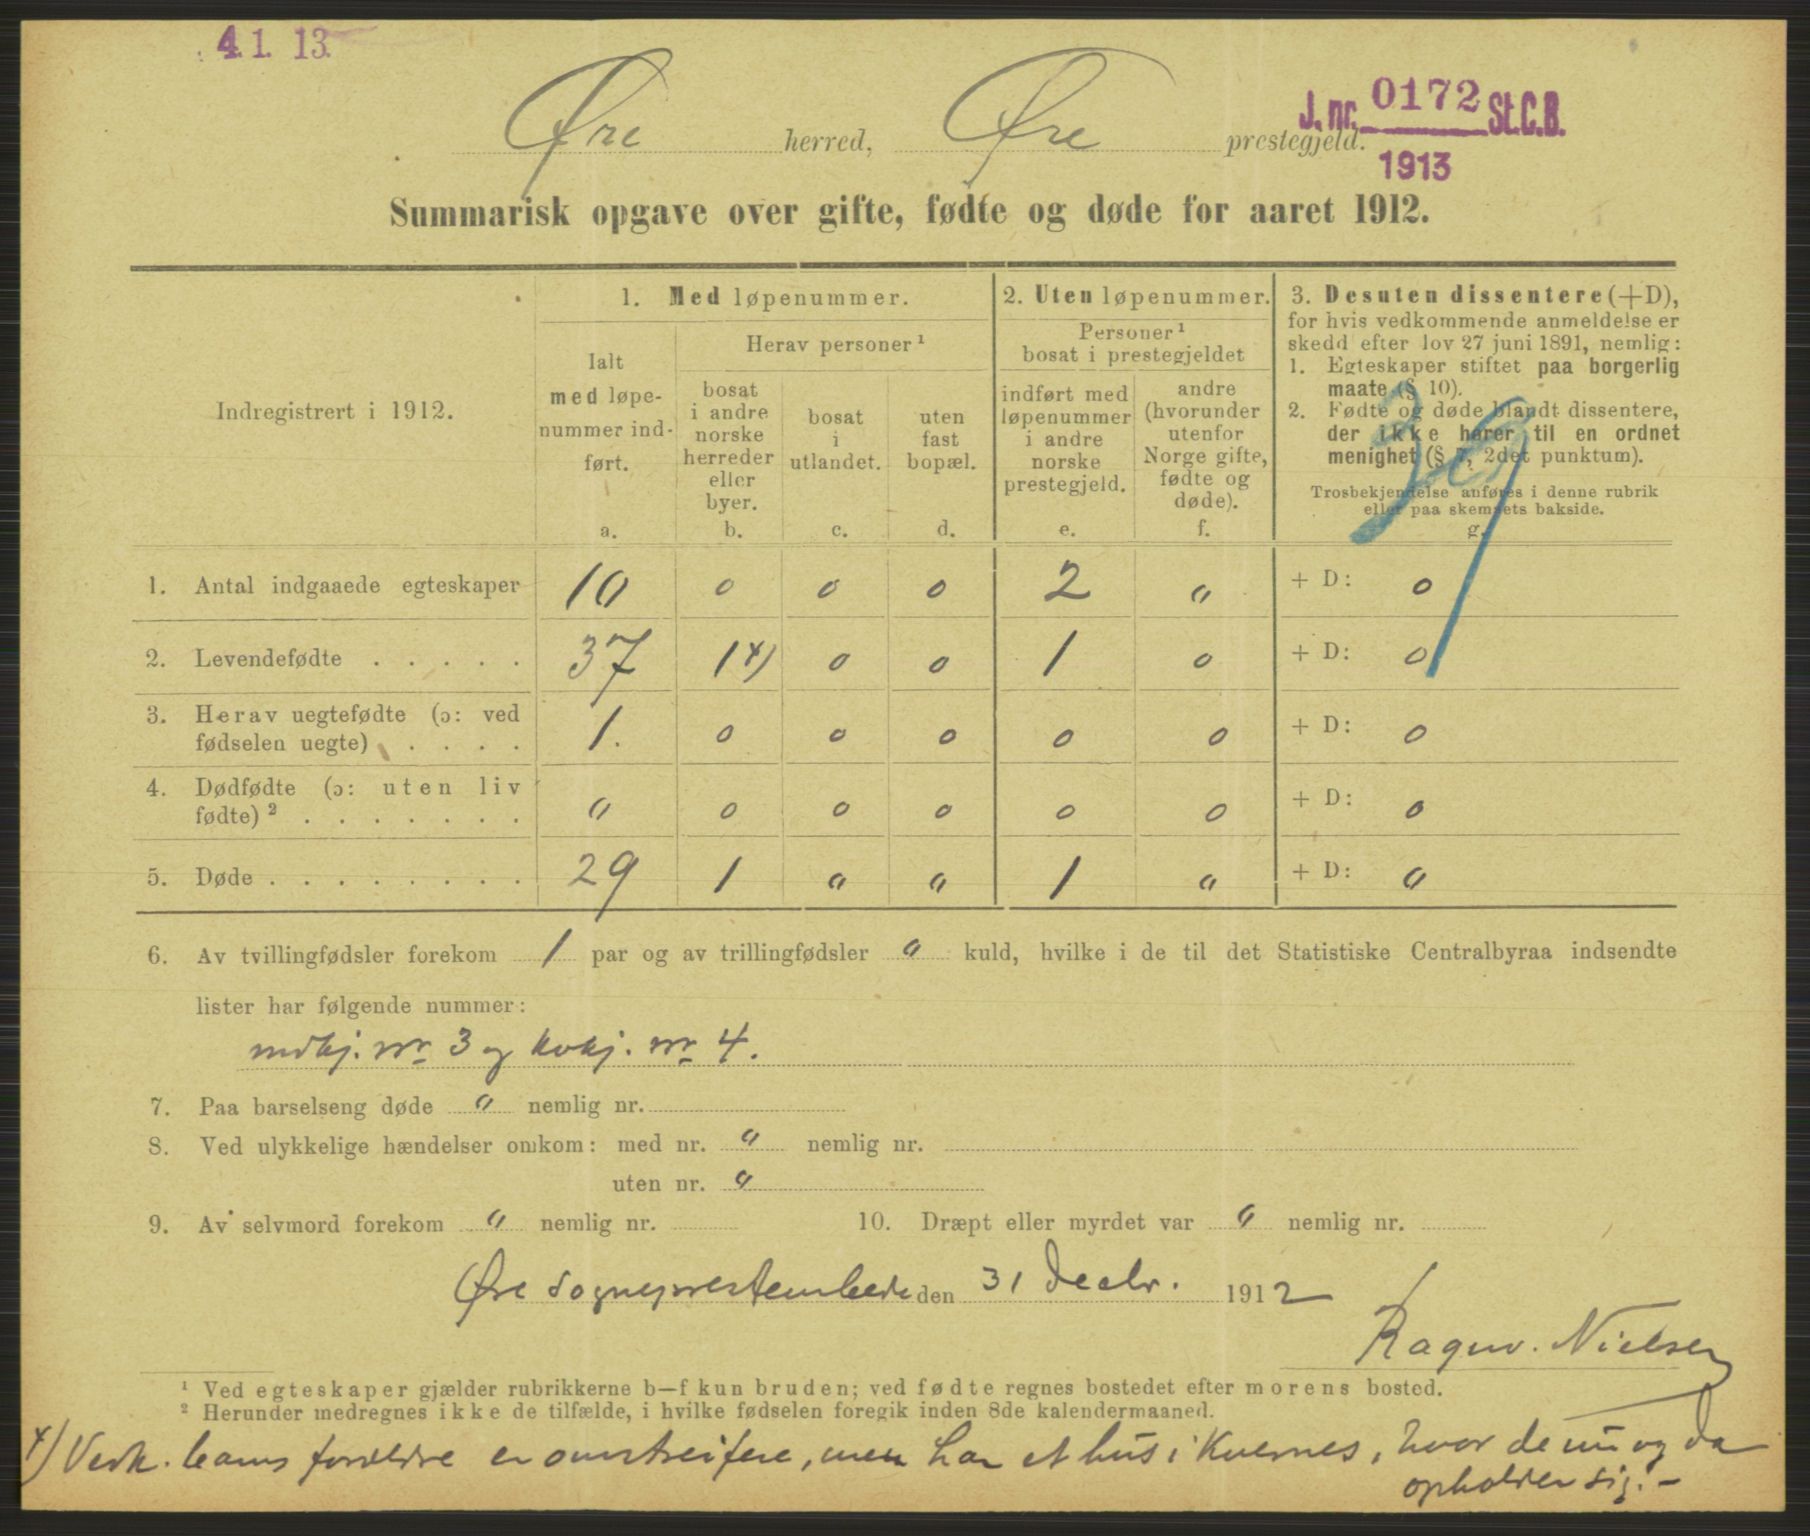 4.1.13.
Øre herred, Øre prestegjeld.
J. nr. 0172 St.C.B.
1913
Summarisk opgave over gifte, fødte og døde for aaret 1912.
Indregistrert i 1912.
1. Med løpenummer.
Ialt
med løpe-
nummer ind-
ført.
a.
Herav personer ¹
bosat
i andre
norske
herreder
eller
byer.
b.
bosat
i
utlandet.
c.
uten
fast
bopæl.
d.
2. Uten løpenummer.
Personer ¹
bosat i prestegjeldet
indført med
løpenummer
i andre
norske
prestegjeld.
e.
andre
(hvorunder
utenfor
Norge gifte,
fødte og
døde).
f.
3. Desuten dissentere (+D),
for hvis vedkommende anmeldelse er
skedd efter lov 27 juni 1891, nemlig:
1. Egteskaper stiftet paa borgerlig
maate (§ 10).
2. Fødte og døde blandt dissentere,
der ikke hører til en ordnet
menighet (§ 7, 2det punktum).
Trosbekjendelse anføres i denne rubrik
eller paa skemaets bakside.
g.
1. Antal indgaaede egteskaper 10 0 0 0 2 " + D: 0
2. Levendefødte . . . . . 37 1 x) 0 0 1 0 + D: 0
3. Herav uegtefødte (ɔ: ved
fødselen uegte) . . . . 1. 0 0 0 0 0 + D: 0
4. Dødfødte (ɔ: uten liv
fødte) ² . . . . . . . " 0 0 0 0 0 + D: 0
5. Døde . . . . . . . . 29 1 " " 1 " + D: "
6. Av tvillingfødsler forekom 1 par og av trillingfødsler " kuld, hvilke i de til det Statistiske Centralbyraa indsendte
lister har følgende nummer:
mdkj. nr 3 og kvkj. nr 4.
7. Paa barselseng døde " nemlig nr.
8. Ved ulykkelige hændelser omkom: med nr. " nemlig nr.
uten nr. "
9. Av selvmord forekom " nemlig nr. 10. Dræpt eller myrdet var " nemlig nr.
Øre sogneprestembede den 31 decbr. 1912
Ragnv. Nielsen
¹ Ved egteskaper gjælder rubrikkerne b—f kun bruden; ved fødte regnes bostedet efter morens bosted.
² Herunder medregnes ikke de tilfælde, i hvilke fødselen foregik inden 8de kalendermaaned.
x) Vedk. barns forældre er omstreifere, men har et hus i Kvernes, hvor de nu og da
opholder sig. –